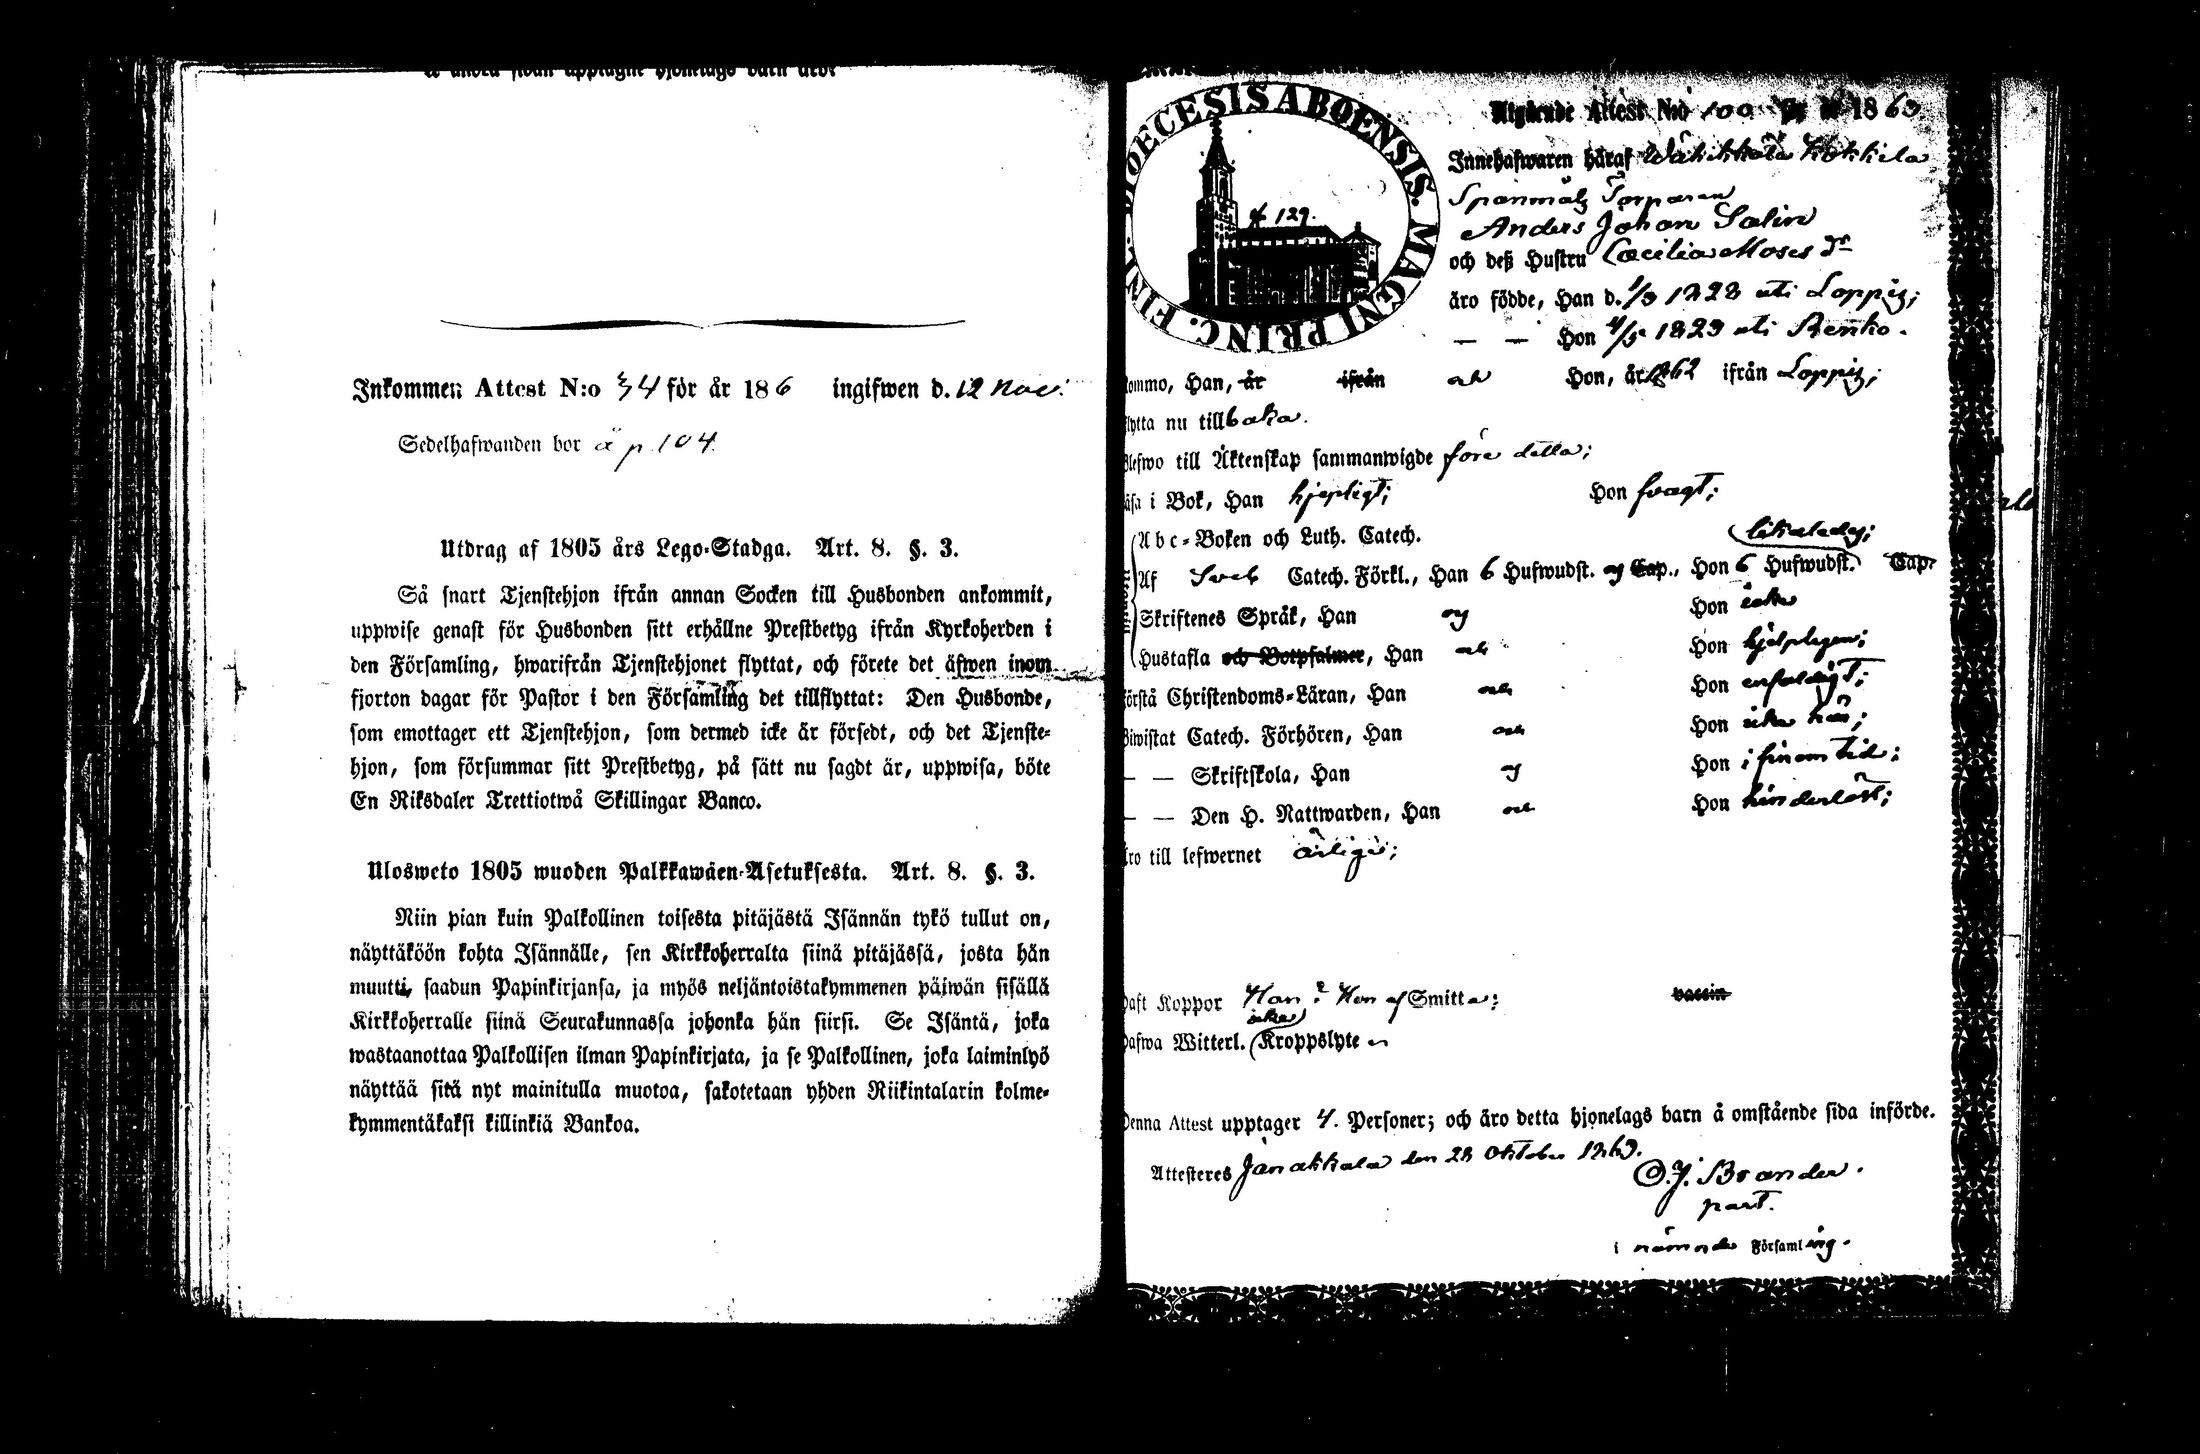 Inkommen Attest N:o 34 för år 186 ingifwen d. 12 Nov:
Sedelhafwanden bor å p. 104.
Utdrag af 1805 års Lego-Stadga. Art. 8. §. 3.
Så snart Tjenstehjon ifrån annan Socken till Husbonden ankommit,
uppwise genast för Husbonden sitt erhållne Prestbetyg ifrån Kyrkoherden i
den Församling, hwarifrån Tjenstehjonet flyttat, och förete det äfwen inom
fjorton dagar för Pastor i den Församling det tillflyttat: Den Husbonde,
som emottager ett Tjenstehjon, som dermed icke är försedt, och det Tjenste-
hjon, som försummar sitt Prestbetyg, på sätt nu sagdt är, uppwisa, böte
En Riksdaler Trettiotwå Skillingar Banco.
Ulosweto 1805 wuoden Palkkawäen-Asetuksesta. Art. 8. §. 3.
Niin pian kuin Palkollinen toisesta pitäjästä Isännän tykö tullut on,
näyttäköön kohta Isännälle, sen Kirkkoherralta siinä pitäjässä, josta hän
muutti, saadun Papinkirjansa, ja myös neljäntoistakymmenen päiwän sisällä
Kirkkoherralle siinä Seurakunnassa johonka hän siirsi. Se Isäntä, joka
wastaanottaa Palkollisen ilman Papinkirjata, ja se Palkollinen, joka laiminlyö
näyttää sitä nyt mainitulla muotoa, sakotetaan yhden Riikintalarin kolme-
kymmentäkaksi killinkiä Bankoa.
DIOECESIS ABOENSIS. MAGNI PRINC. FINL.
129.
Utgående Attest N:o 100 1863
Innehafwaren häraf Wähikkälä Kokkila
Spanmåls Torparen
Anders Johan Salin
och deß Hustru Cæcilia Moses dr
äro födde, Han d. 1/3 1828 uti Loppis;
— — Hon 4/5 1829 uti Renko.
kommo, Han, är ifrån och Hon, år 1862 ifrån Loppis;
flytta nu tillbaka.
Blefwo till Äktenskap sammanwigde före detta;
läsa i Bok, Han hjepligt; Hon swagt;
Abc-Boken och Luth. Catech. likaledes;
Af Sveb Catech. Förkl., Han 6 Hufwudst. og Cap., Hon 6 Hufwudst. Cap.
Skriftenes Språk, Han og Hon icke
Hustafla och Botpsalmer, Han och Hon hjelpligen;
förstå Christendoms-Läran, Han och Hon enfaldigt;
Biwistat Catech. Förhören, Han och Hon icke här;
— — Skriftskola, Han og Hon i sinom tid;
— — Den H. Nattwarden, Han och Hon hinderlöst;
äro till lefwernet ärliga;
haft Koppor Han? Hon af Smitta; vaccin
icke
hafwa Witterl. Kroppslyte
Denna Attest upptager 4. Personer; och äro detta hjonelags barn å omstående sida införde.
Attesteres Janakkala den 28 Oktober 1863.
O. J. Brander.
past.
i nämnde Församling.